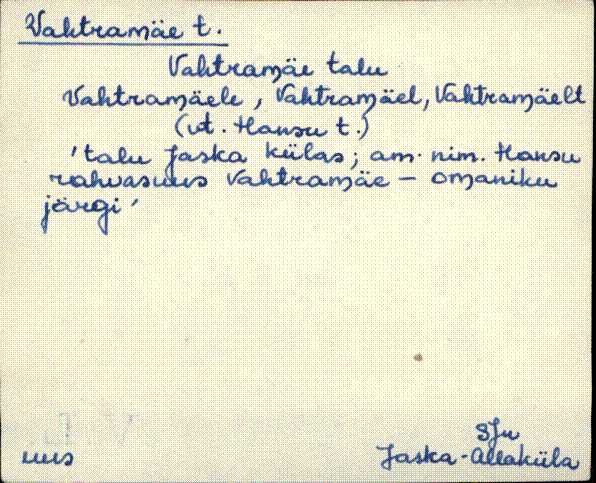 Vahtramäe t.
Vahtramäe talu
Vahtramäele, Vahtramäel, Vahtramäelt
(vt. Hansu t.)
'talu Jaska külas; am. nim. Hansu
rahvasuus Vahtramäe – omaniku
järgi'
SJu
uus Jaska-Allaküla